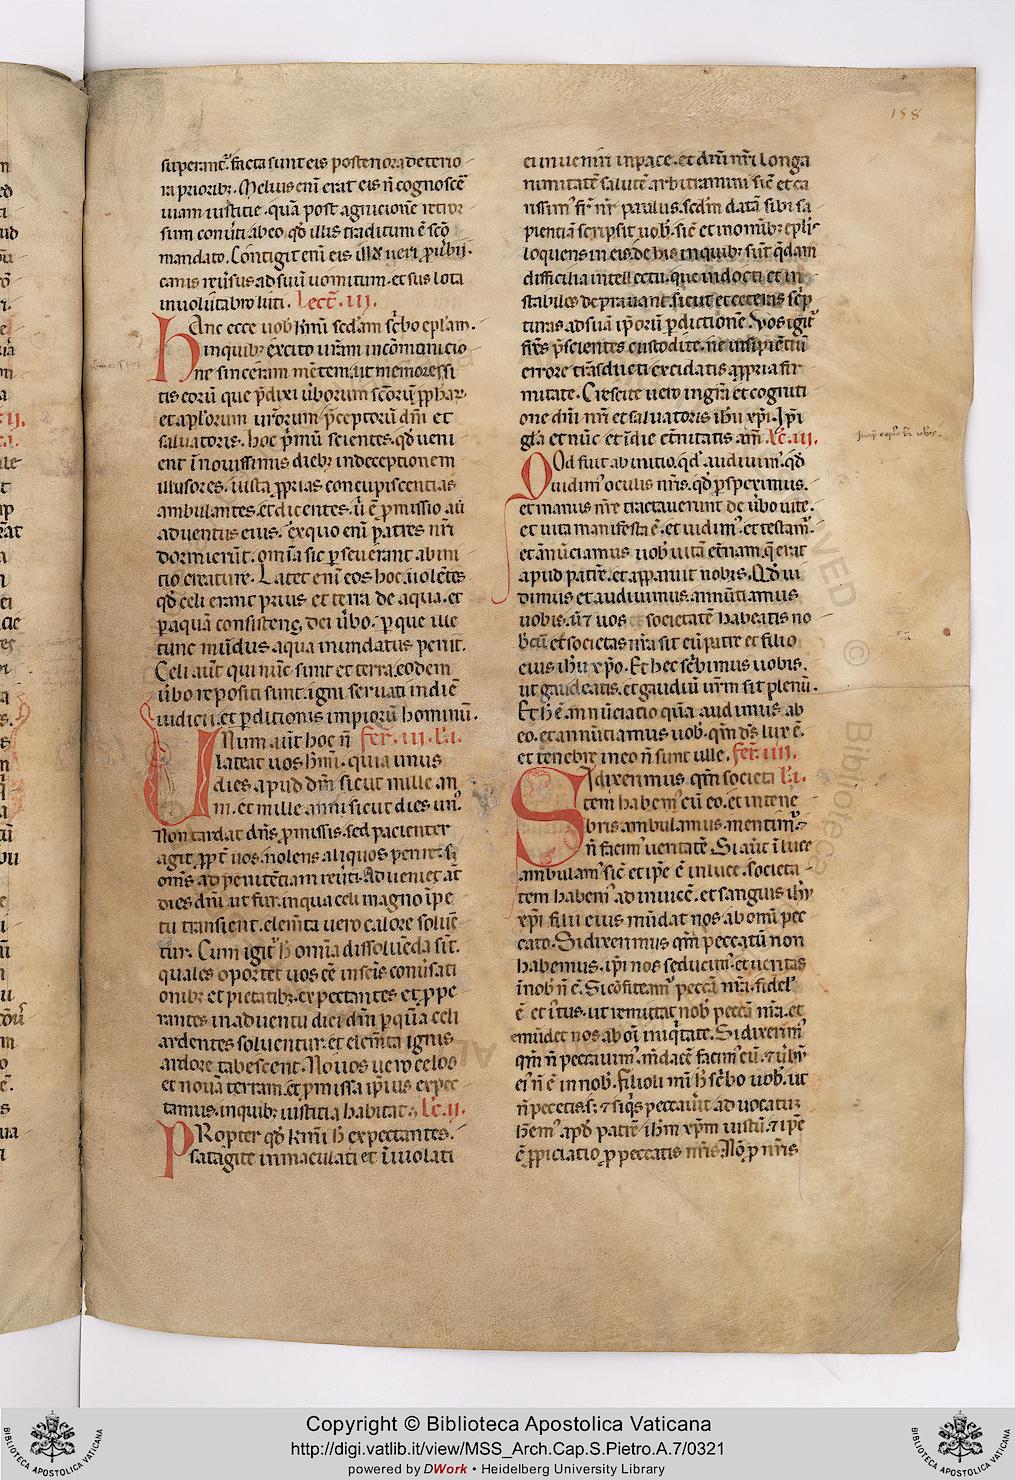 158
superant᷑. facta sunt eis posteriora deterio
ra priorib⁊. Melius eni᷑ erat eis n̄ cognoscē
uiam iustitie. quā post agnicionē retror
sum conūti ab eo. qd̄ illis traditum ē scō
mandato. Contigit enī eis illd̄ ueri ꝓūbii.
canis reūsus ad suū uomitum. et sus lota
in uolutabro luti. Lect̄. III.
Hanc ecce uob̄ kmī scdam sc̄bo epl̄am.
in quib⁊ excito ur̄am in cōmonicio
ne sinceram mētem. ut memores si
tis eorū que p̄dixi ūborum scōrū ꝓphar.
et apl̄orum ur̄orum p̄ceptorū dn̄i et
saluatoris. hoc p̄mū scientes. qd̄ ueni
ent ī nouissimis dieb⁊ in deceptionem
illusores. iusta ꝓprias concupiscentias
ambulantes. et dicentes. ū ē ꝓmissio aū
aduentus eius. ex quo enī patres nr̄i
dormierūt. omīa sic ꝑseuerant ab ini
tio creature. Latet enī eos hoc. uolētes
qd̄ celi erant prius et terra de aqua. et
ꝑ aquā consistens. dei ūbo. ꝑ que ille
tunc mūdus aqua inundatus periit.
Celi aūt qui nūc sunt et terra. eodem
ūbo repositi sunt. igni seruati in diē
iudicii. et ꝑditionis impiorū hominū.
Unum aūt hoc n̄ fer̄. III. l̄.i.
lateat uos kmī. quia unus
dies apud dm̄ sicut mille an
ni. et mille anni sicut dies un᷒.
Non tardat dn̄s ꝓmissis. sed pacienter
agit ꝓpt̄ uos. nolens aliquos perire. s⁊
om̄s ad penitētiam reūti. Adueniet at̄
dies dn̄i ut fur. in qua celi magno īpe
tu transient. elem̄ta uero calore soluē
tur. Cum igit᷑ h̄ omīa dissoluēda sūt.
quales oportet uos eē in scīs conūsati
onib⁊ et pietatib⁊. expectantes et ꝓpe
rantes in aduentu diei dn̄i ꝑ quā celi
ardentes soluentur. et elem̄ta ignis
ardore tabescent. Nouos uero celos
et nouā terram. et ꝓmissa ip̄ius expec
tamus. in quib⁊ iustitia habitat. Lc̄. II.
Propter qd̄ kmī h̄ expectantes.
satagite inmaculati et īuiolati
ei inueniri in pace. et dn̄i nr̄i longa
nimitatē salutē arbitramini. sic̄ et ca
rissim᷒ fr̄ nr̄ paulus. scdm datā sibi sa
pientiā scripsit uob̄. sic̄ et in omīb⁊ epl̄is
loquens in eis de his. in quib⁊ sūt q̄dam
difficilia intellectu. que indocti et in
stabiles deprauant. sicut et ceteras sc̄p
turas ad suā ip̄orū ꝑdictionē. Vos igit᷑
fr̄es p̄scientes custodite. ne insipiētiū
errore trāsducti excidatis a ꝓpria fir
mitate. Crescite uero in gr̄a et cogniti
one dn̄i nr̄i et saluatoris ih̄u xp̄i. Ip̄i
gl̄a et nūc et ī die et̄nitatis. am̄. Lc̄. III.
Qod fuit ab initio. qd̄ audiuim᷒. qd̄
uidim᷒ oculis nr̄is. qd̄ ꝑspeximus.
et manus nr̄e tractauerunt de ūbo uite.
et uita manifesta ē. et uidim᷒. et testam᷒.
et ānūciamus uob̄ uitā et̄nam. q̄ erat
apud patrē. et apparuit nobis. Qd̄ ui
dimus et audiuimus. annūtiamus
uobis. ut̄ uos societatē habeatis no
bcū et societas nr̄a sit cū patre et filio
eius ih̄u xp̄o. Et hec sc̄bimus uobis.
ut gaudeatis. et gaudiū ur̄m sit plenū.
Et h̄ ē annūciatio quā audiuimus ab
eo. et annūtiamus uob̄. qm̄ ds̄ lux ē.
et tenebre in eo n̄ sunt ulle. fer̄. IIII.
Si dixerimus qm̄ societa l̄.i.
tem habem᷒ cū eo. et in tene
bris ambulamus. mentim᷒. ⁊
n̄ facim᷒ ueritatē. Si aūt ī luce
ambulam᷒ sic̄ et ip̄e ē in luce. societa
tem habem᷒ ad inuicē. et sanguis ih̄u
xp̄i filii eius mūdat nos ab omī pec
cato. Si dixerimus qm̄ peccatū non
habemus. ip̄i nos seducim᷒. et ueritas
ī nob̄ n̄ ē. Si cōfiteam᷒ peccā nr̄a. fidel᷒
ē et iust᷒. ut remittat nob̄ peccā nr̄a. et
emūdet nos ab oī iniq̄tate. Si dixerim᷒
qm̄ n̄ peccauim᷒. m̄dacē facim᷒ eū. ⁊ ūbū
ei᷒ n̄ ē in nob̄. Filioli mī h̄ sc̄bo uob̄. ut
n̄ peccetis. s⁊ ⁊ siq̄s peccaūit aduocatū
hem᷒ apd̄ patrē ih̄m xp̄m iustū. ⁊ ip̄e
ē ꝓpiciatio ꝓ peccatis nr̄is. Nō ꝓ nr̄is
Copyright © Biblioteca Apostolica Vaticana
http://digi.vatlib.it/view/MSS_Arch.Cap.S.Pietro.A.7/0321
powered by DWork • Heidelberg University Library
BIBLIOTECA APOSTOLICA VATICANA
BIBLIOTECA APOSTOLICA VATICANA